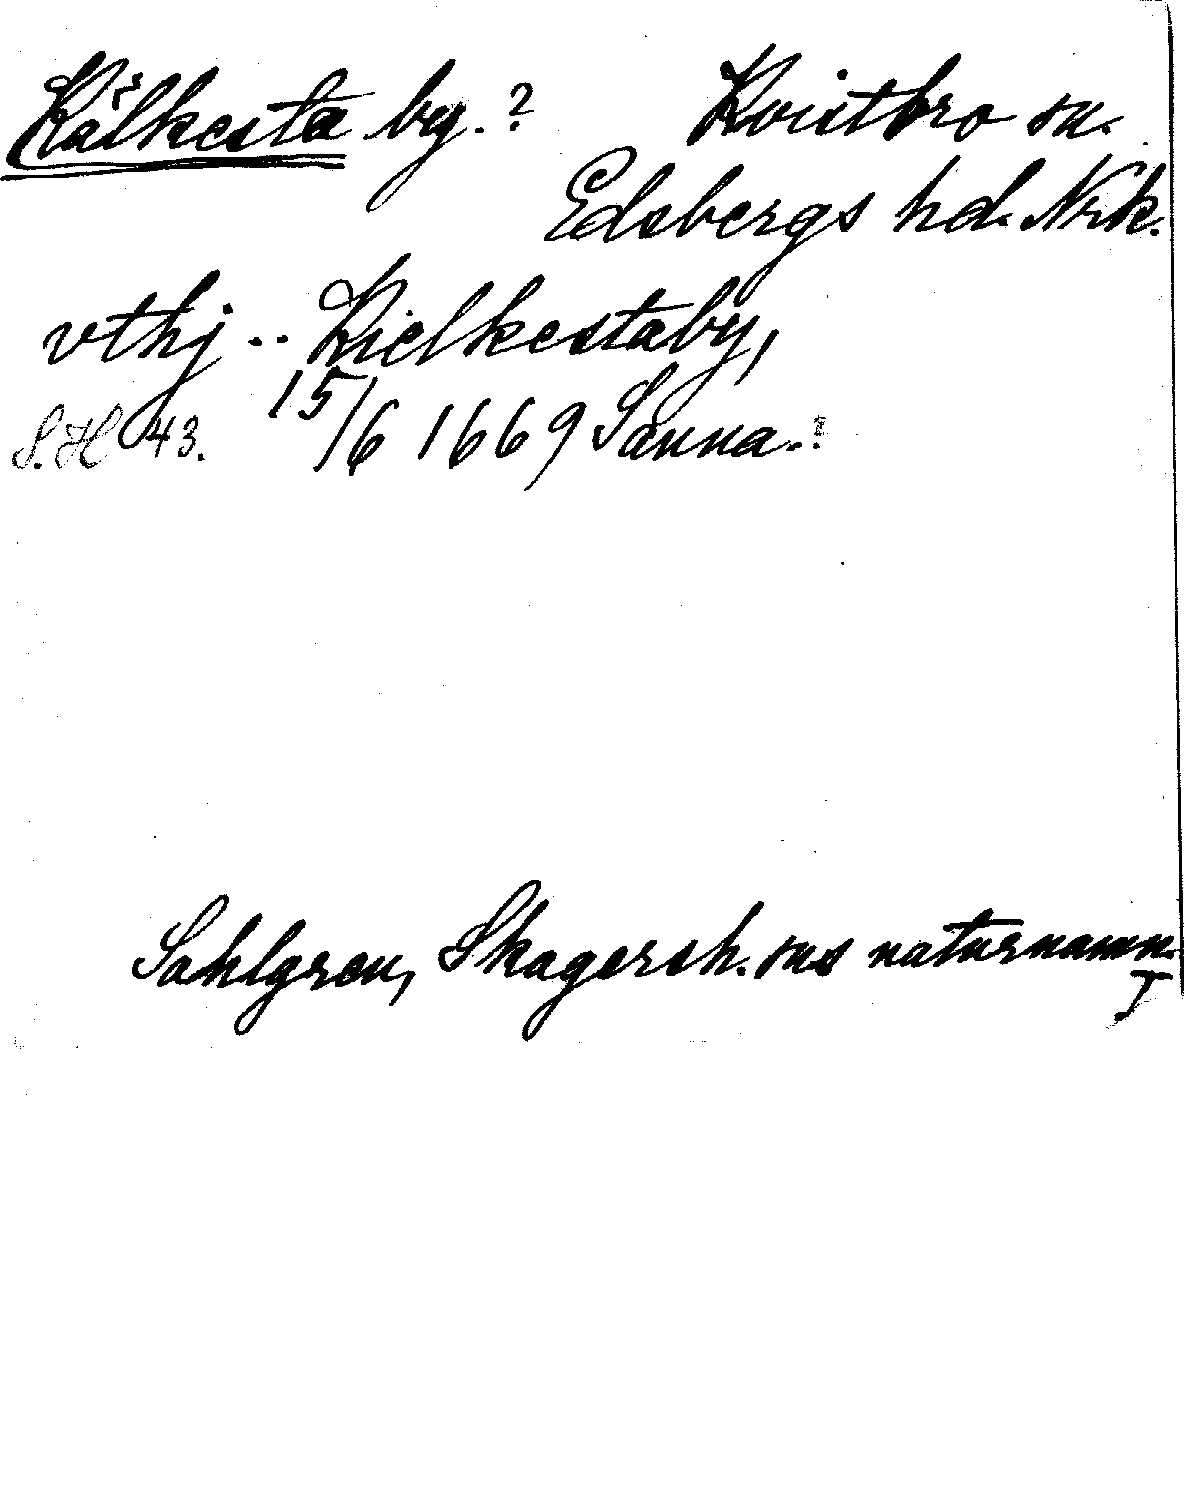 Kälkesta by.? Kvistbro sn.
Edsbergs hd. Nrk.
vthj .. Kielkestaby,
S.H 43. 15/6 1669 Sanna.?
Sahlgren, Skagersh. sns naturnamn.
I